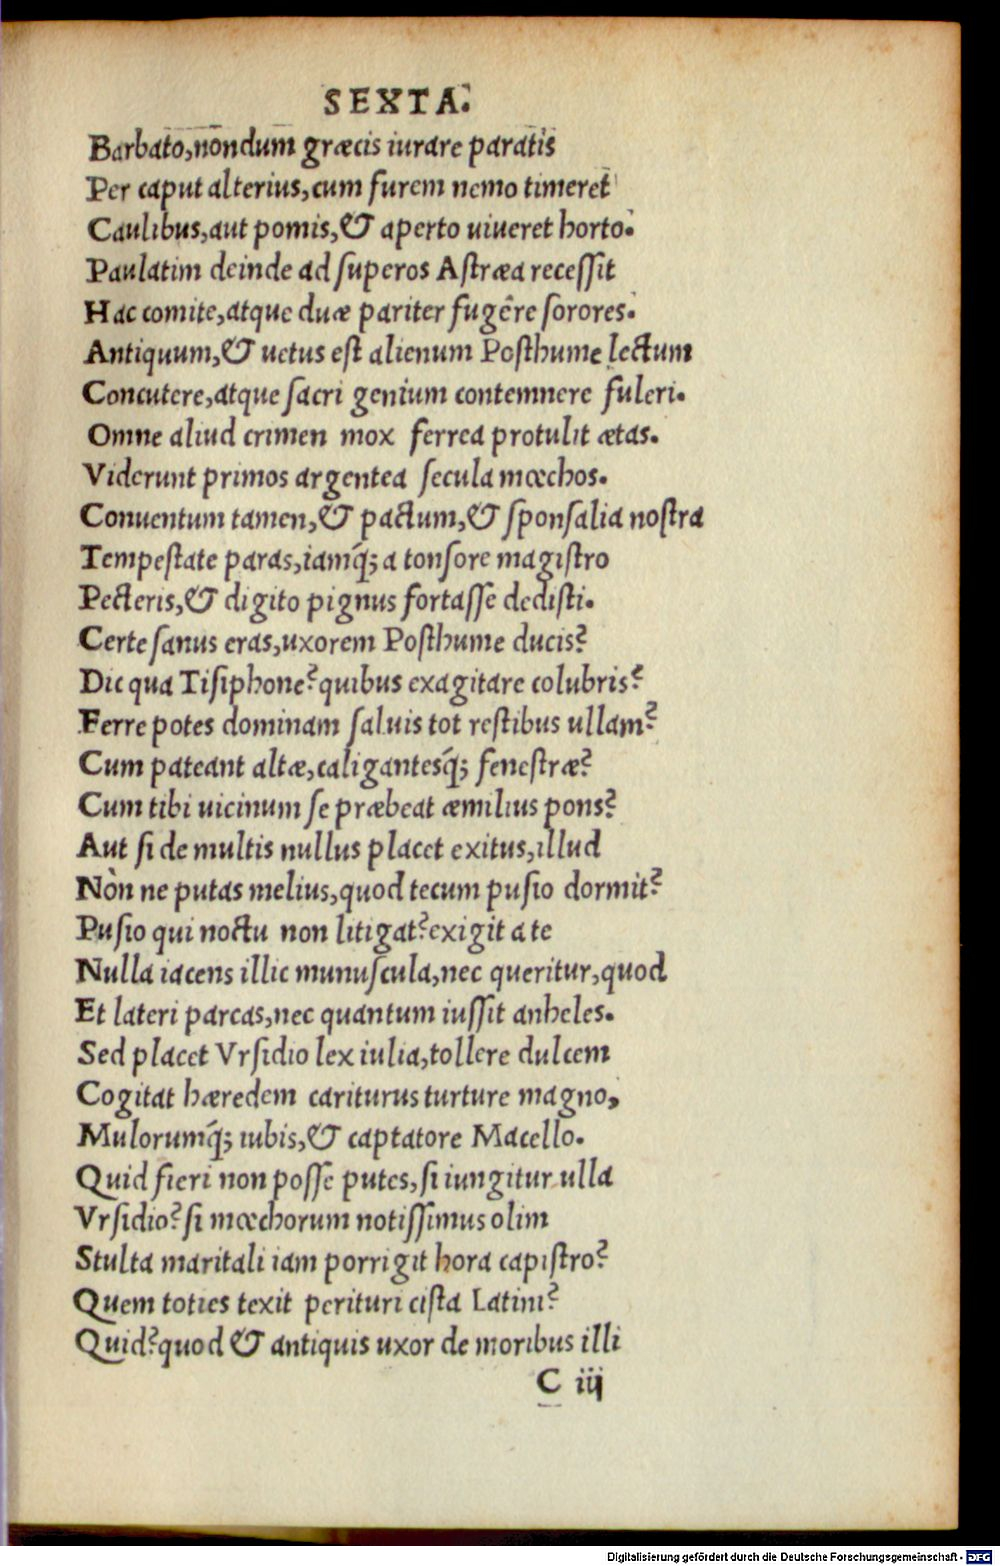 SEXTA.
Barbato,nōndum græcis iurare paratis
Per caput alterius,cum furem nemo timeret
Caulibus,aut pomis,& aperto uiueret horto.
Paulatim deinde ad ſuperos Aſtræa receſſit
Hac comite,atque duæ pariter fugêre ſorores.
Antiquum,& uetus eſt alienum Poſthume lectum
Concutere,atque ſacri genium contemnere fulcri.
Omne aliud crimen mox ferrea protulit ætas.
Viderunt primos argentea ſecula mœchos.
Conuentum tamen,& pactum,& ſponſalia noſtra
Tempeſtate paras,iamq́; a tonſore magiſtro
Pecteris,& digito pignus fortaſſe dediſti.
Certe ſanus eras,uxorem Poſthume ducis?
Dic qua Tiſiphone?quibus exagitare colubris?
Ferre potes dominam ſaluis tot reſtibus ullam?
Cum pateant altæ,caligantesq́; feneſtræ?
Cum tibi uicinum ſe præbeat æmilius pons?
Aut ſi de multis nullus placet exitus,illud
Nòn ne putas melius,quod tecum puſio dormit?
Puſio qui noctu non litigat?exigit a te
Nulla iacens illic munuſcula,nec queritur,quod
Et lateri parcas,nec quantum iuſſit anheles.
Sed placet Vrſidio lex iulia,tollere dulcem
Cogitat hæredem cariturus turture magno,
Mulorumq́; iubis,& captatore Macello.
Quid fieri non poſſe putes,ſi iungitur ulla
Vrſidio?ſi mœchorum notiſſimus olim
Stulta maritali iam porrigit hora capiſtro?
Quem toties texit perituri ciſta Latini?
Quid?quod & antiquis uxor de moribus illi
C iij
Digitalisierung gefördert durch die Deutsche Forschungsgemeinschaft - DFG